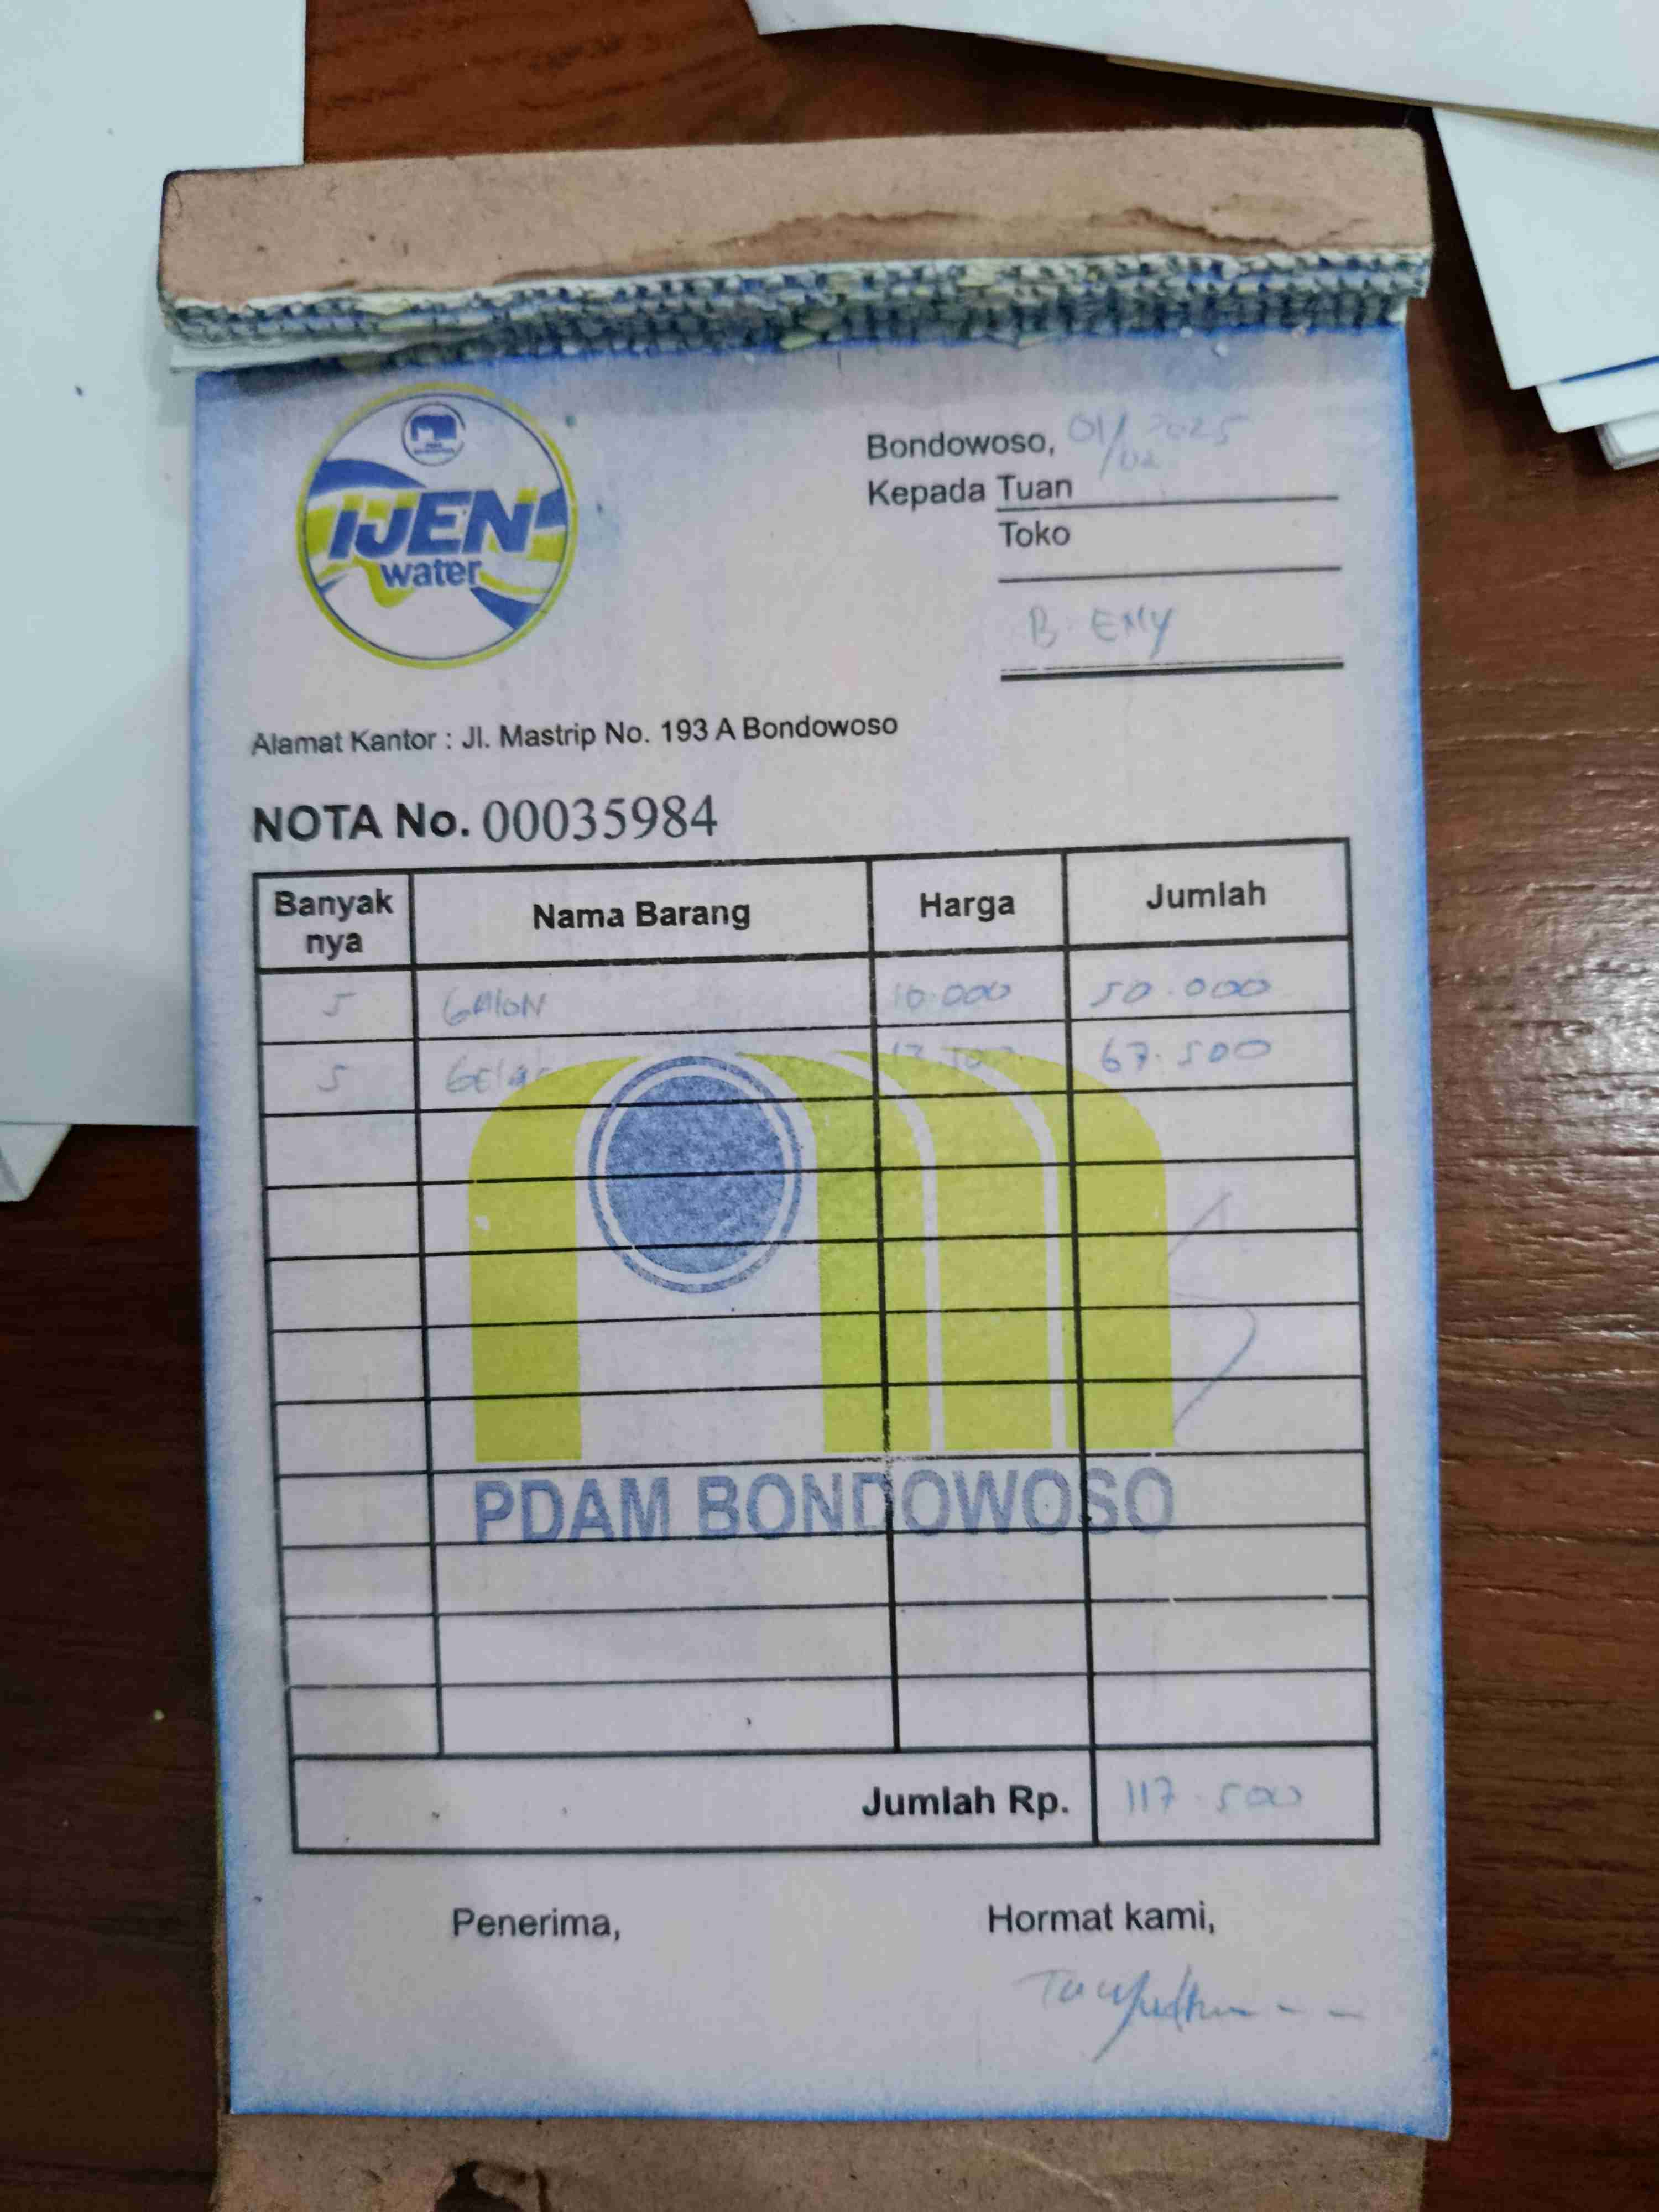 IJEN
water
Bondowoso, 01/02 2025
Kepada Tuan
Toko
B. EMY
Alamat Kantor : Jl. Mastrip No. 193 A Bondowoso
NOTA No. 00035984
Banyak nya Nama Barang Harga Jumlah
5 GALLON 10.000 50.000
5 13.500 67.500
PDAM BONDOWOSO
Jumlah Rp. 117.500
Penerima, Hormat kami,